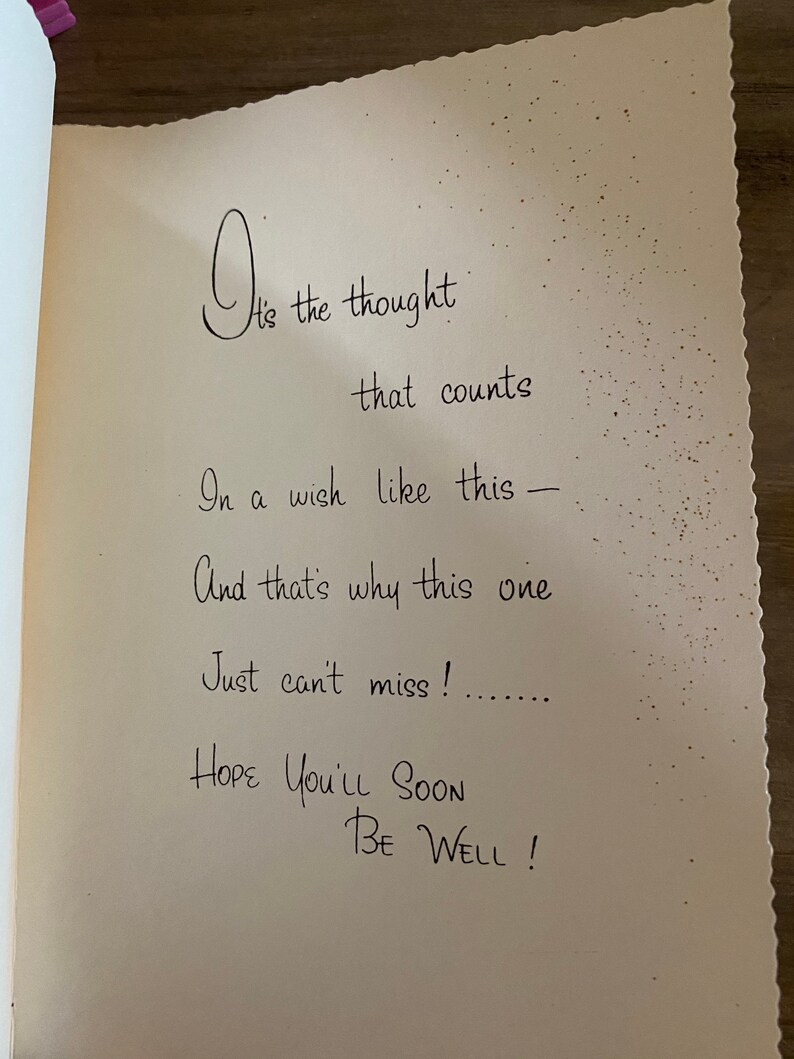 It's the thought
that counts
In a wish like this —
And that's why this one
Just can't miss! .......
HOPE YOU'LL SOON
BE WELL!